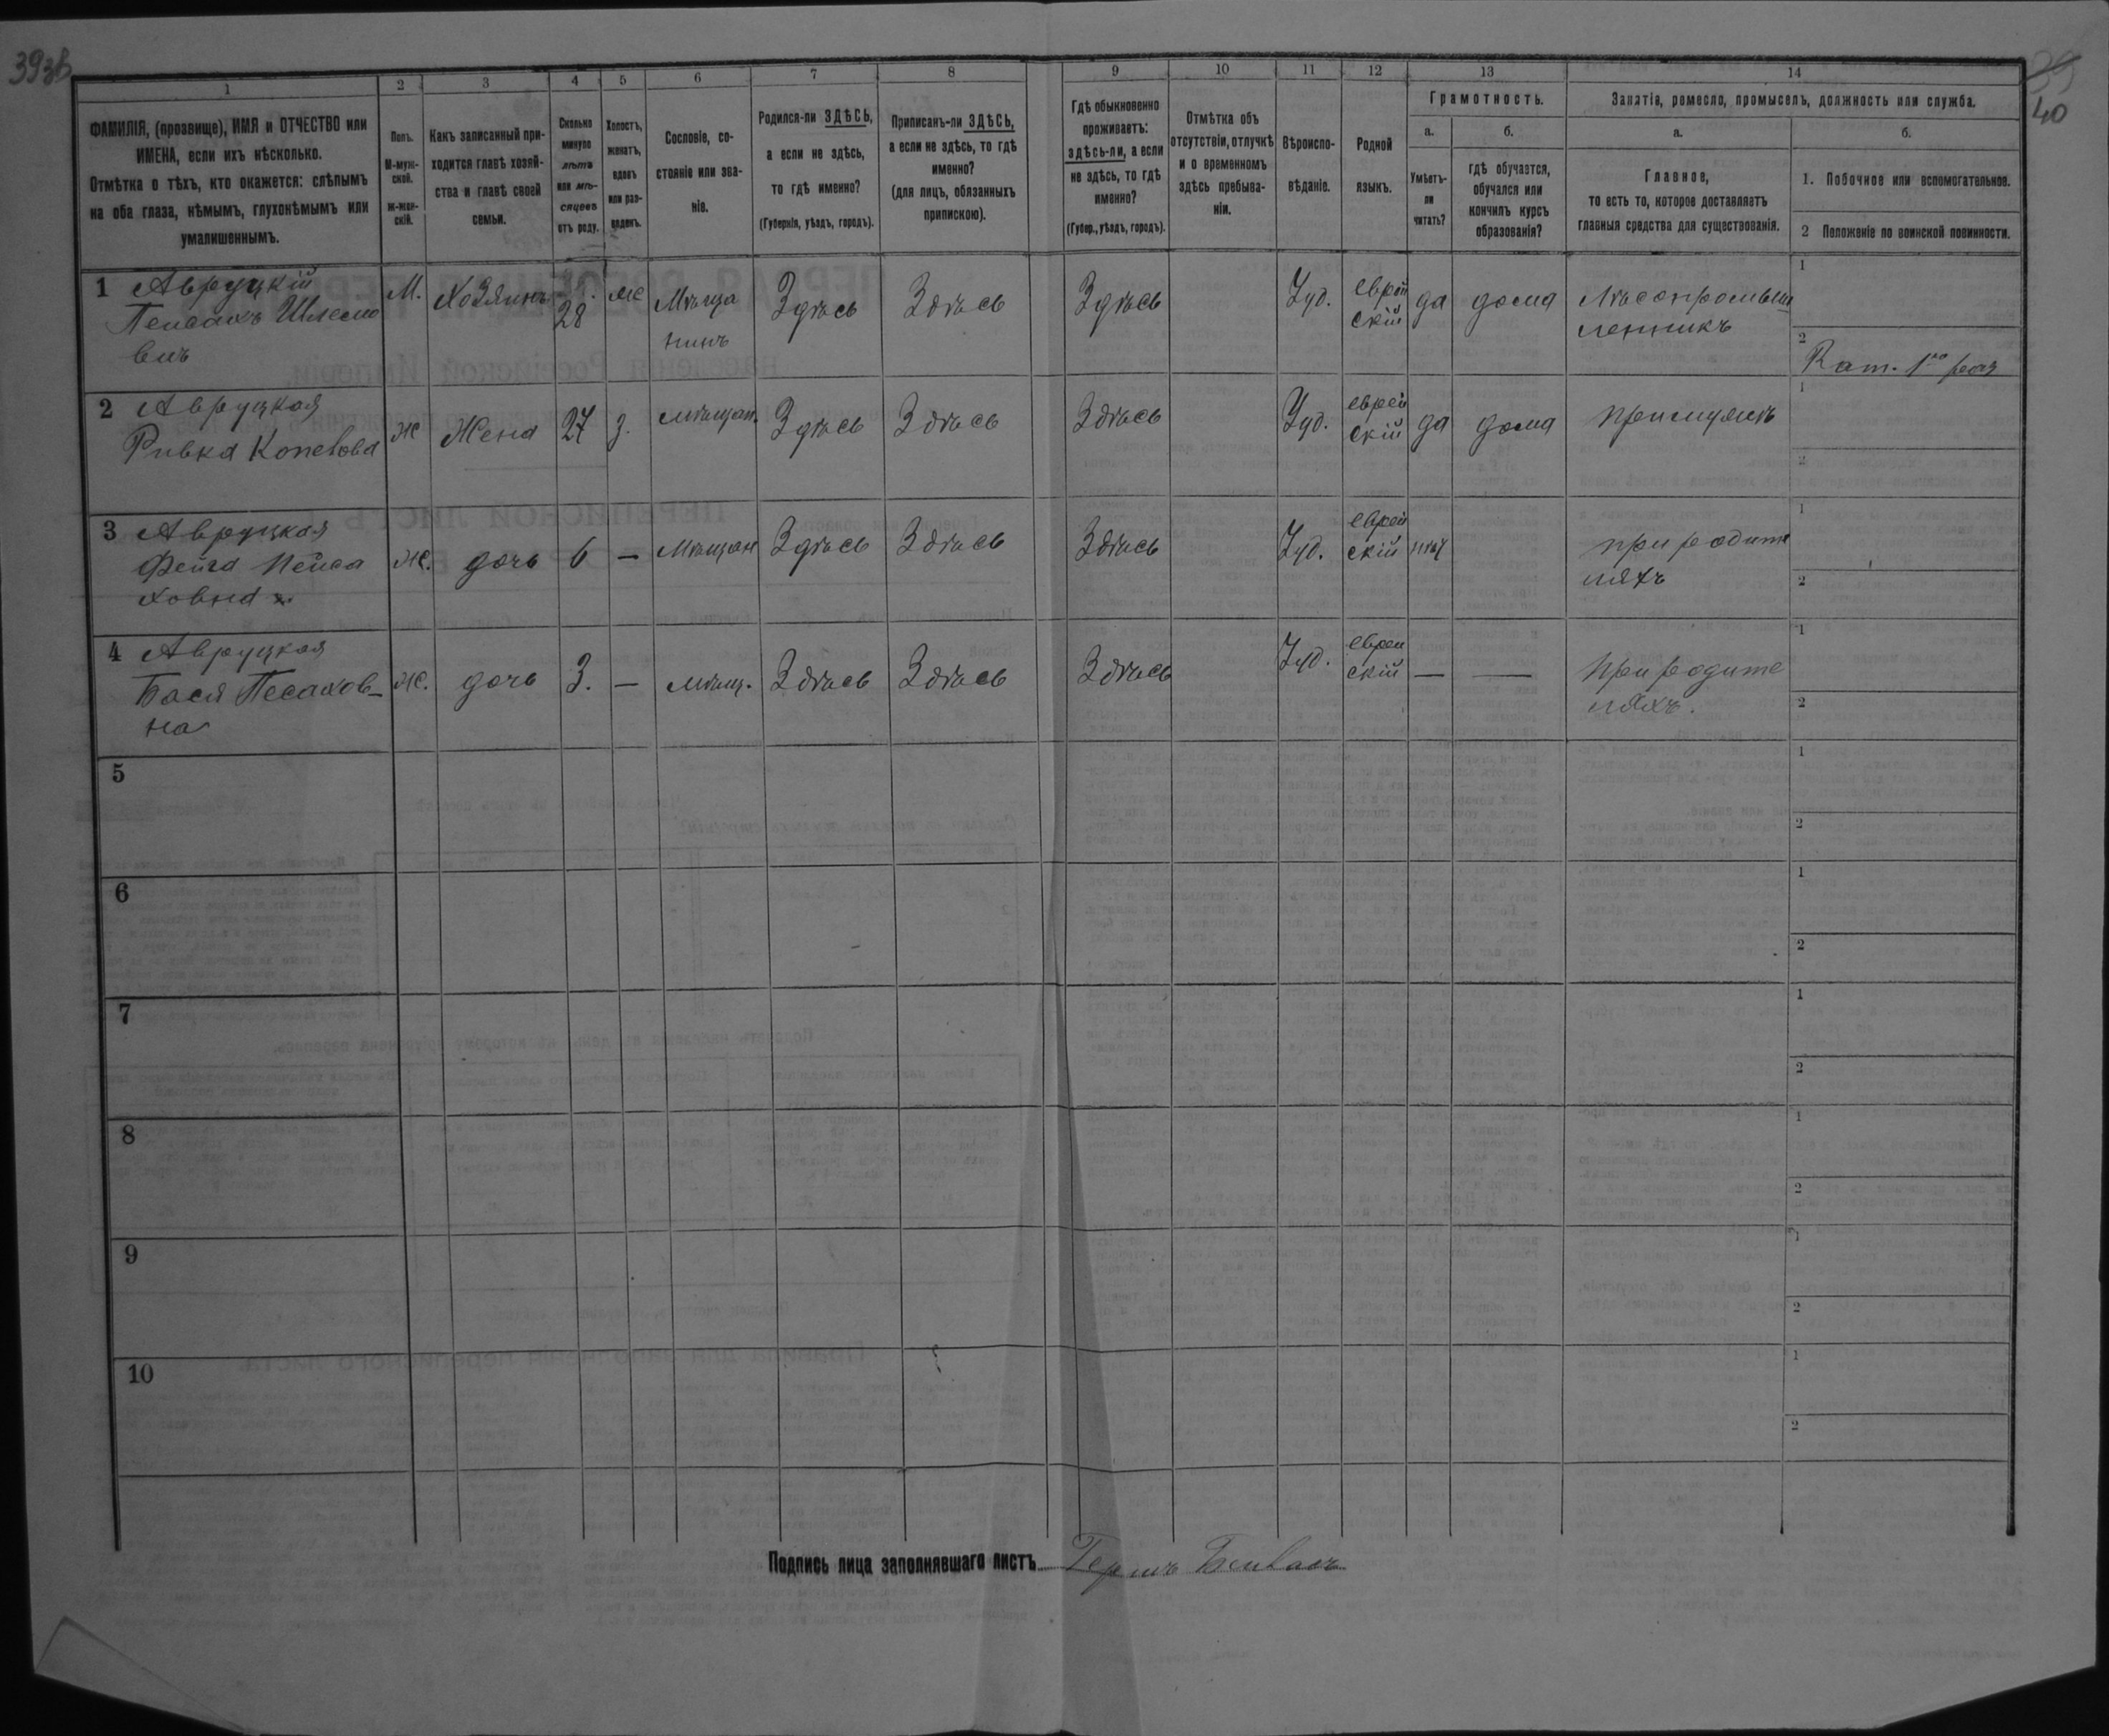 39зв
39
40
1 2 3 4 5 6 7 8 9 10 11 12 13 14
ФАМИЛІЯ, (прозвище), ИМЯ и ОТЧЕСТВО или
ИМЕНА, если ихъ нѣсколько.
Отмѣтка о тѣхъ, кто окажется: слѣпымъ
на оба глаза, нѣмымъ, глухонѣмымъ или
умалишеннымъ.
Полъ.
М-муж-
ской.
Ж-жен-
скій.
Какъ записанный при-
ходится главѣ хозяй-
ства и главѣ своей
семьи.
Сколько
минуло
лѣтъ
или мѣ-
сяцевъ
отъ роду.
Холостъ,
женатъ,
вдовъ
или раз-
веденъ.
Сословіе, со-
стояніе или зва-
ніе.
Родился-ли ЗДѢСЬ,
а если не здѣсь,
то гдѣ именно?
(Губернія, уѣздъ, городъ).
Приписанъ-ли ЗДѢСЬ,
а если не здѣсь, то гдѣ
именно?
(для лицъ, обязанныхъ
припискою).
Гдѣ обыкновенно
проживаетъ:
здѣсь-ли, а если
не здѣсь, то гдѣ
именно?
(Губер., уѣздъ, городъ).
Отмѣтка объ
отсутствіи, отлучкѣ
и о временномъ
здѣсь пребыва-
ніи.
Вѣроиспо-
вѣданіе.
Родной
языкъ.
Грамотность.
а.
Умѣетъ-
ли
читать?
б.
гдѣ обучается,
обучался или
кончилъ курсъ
образованія?
Занятія, ремесло, промыселъ, должность или служба.
а.
Главное,
то есть то, которое доставляетъ
главныя средства для существованія.
б.
1. Побочное или вспомогательное.
2 Положеніе по воинской повинности.
1 Авруцкій
Пейсахъ Шлемо
вичъ
М.
Хозяинъ
28
же
Мѣща
нинъ
Здѣсь
Здѣсь
Здѣсь
Іуд.
еврей
скій
да
дома
Лѣсопромыш
ленникъ
1
2
Рат. 1го раз
2 Авруцкая
Ривка Копелова
ж
Жена
27
з.
мѣщан.
Здѣсь
Здѣсь
Здѣсь
Іуд.
еврей
скій
да
дома
при мужѣ
1
2
3 Авруцкая
Фейга Пейса
ховна
ж.
дочь
6
—
Мѣщан
Здѣсь
Здѣсь
Здѣсь
Іуд.
еврей
скій
нѣт
при родите
ляхъ
1
2
4 Авруцкая
Бася Песахов-
на
ж.
дочь
3.
—
мѣщ.
Здѣсь
Здѣсь
Здѣсь
Іуд.
евреи
скій
—
—
при родите
ляхъ.
1
2
5
1
2
6
1
2
7
1
2
8
1
2
9
1
2
10
1
2
Подпись лица заполнявшаго листъ Гершъ